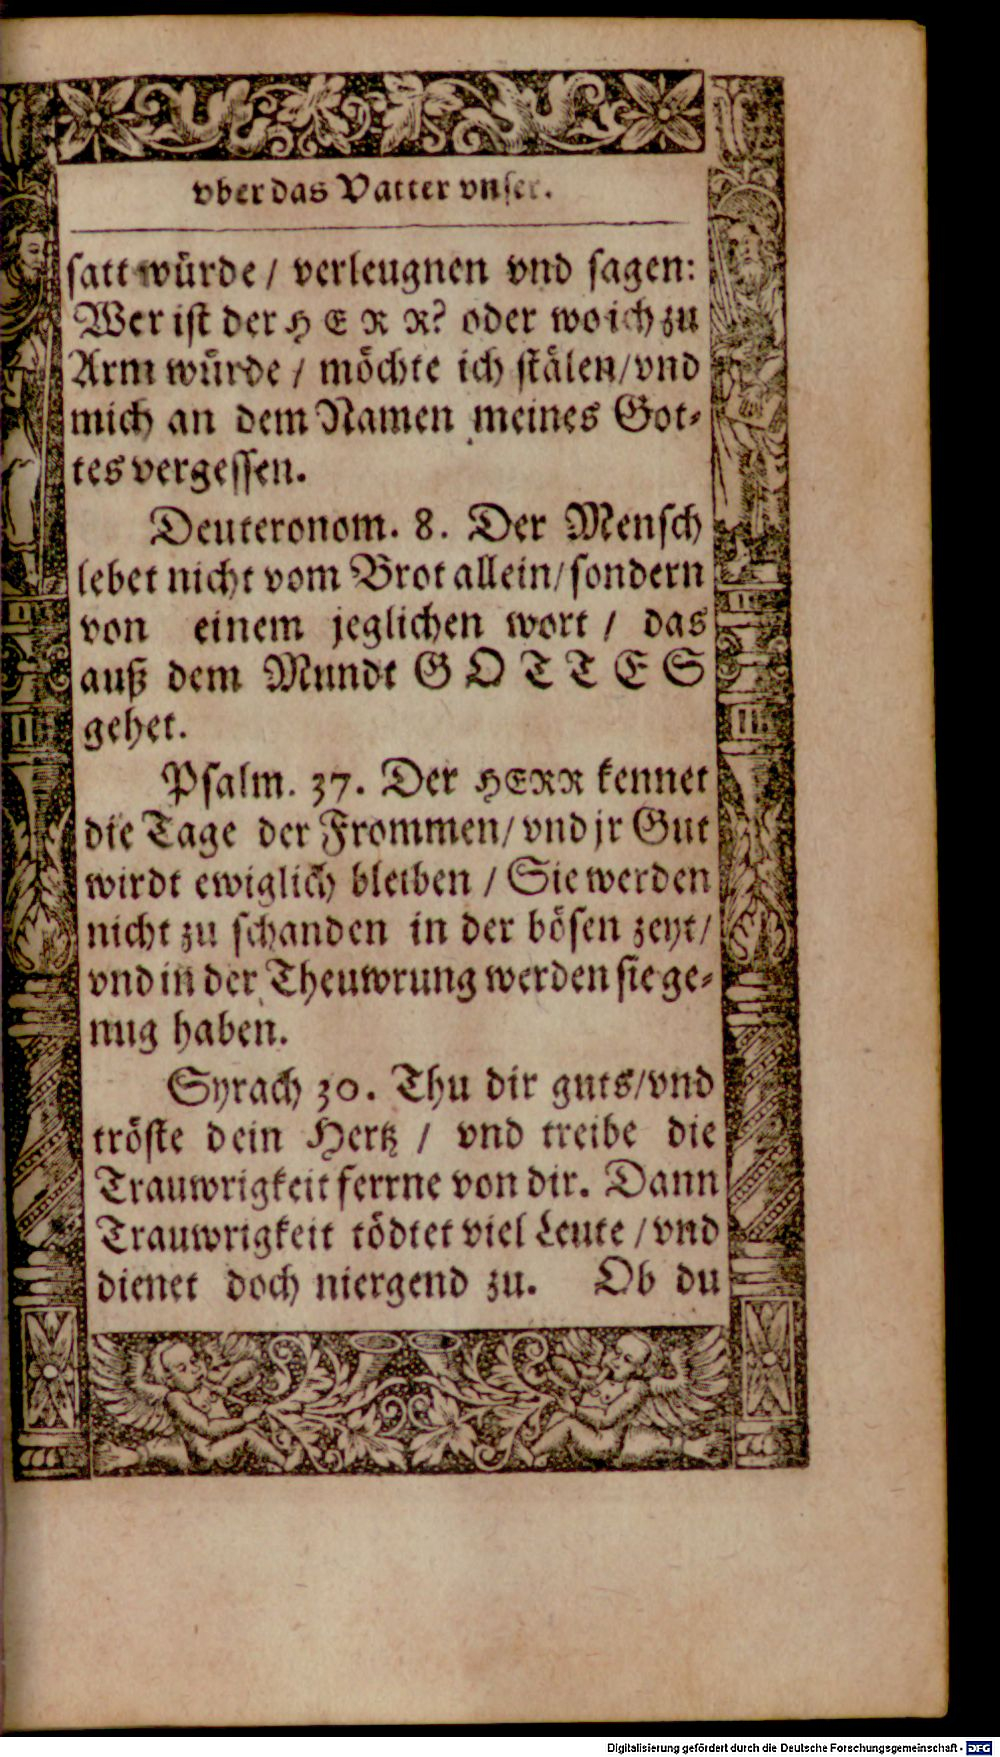 vber das Vatter vnser.
satt würde / verleugnen vnd sagen:
Wer ist der HERR? oder wo ich zu
Arm würde / möchte ich stälen/vnd
mich an dem Namen meines Got-
tes vergessen.
Deuteronom. 8. Der Mensch
lebet nicht vom Brot allein/sondern
von einem jeglichen wort / das
auß dem Mundt GOTTES
gehet.
Psalm. 37. Der HERR kennet
die Tage der Frommen/vnd jr Gut
wirdt ewiglich bleiben / Sie werden
nicht zu schanden in der bösen zeyt/
vnd in der Theuwrung werden sie ge-
nug haben.
Syrach 30. Thu dir guts/vnd
tröste dein Hertz / vnd treibe die
Trauwrigkeit ferrne von dir. Dann
Trauwrigkeit tödtet viel Leute /vnd
dienet doch niergend zu. Ob du
Digitalisierung gefördert durch die Deutsche Forschungsgemeinschaft - DFG